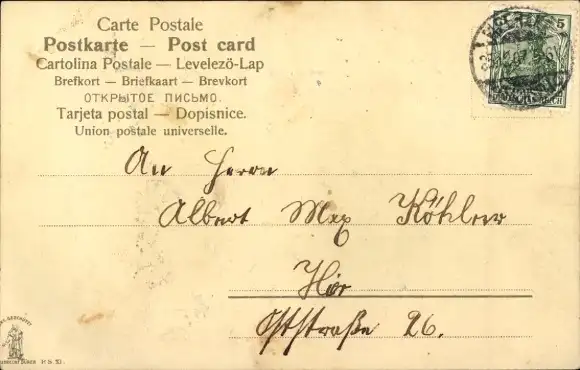 Carte Postale
Postkarte — Post card
Cartolina Postale — Levelezö-Lap
Brefkort — Briefkaart — Brevkort
ОТКРЫТОЕ ПИСЬМО.
Tarjeta postal — Dopisnice.
Union postale universelle.
5
An Herrn
Albert Max Köhler
Hier
Oststraße 26.